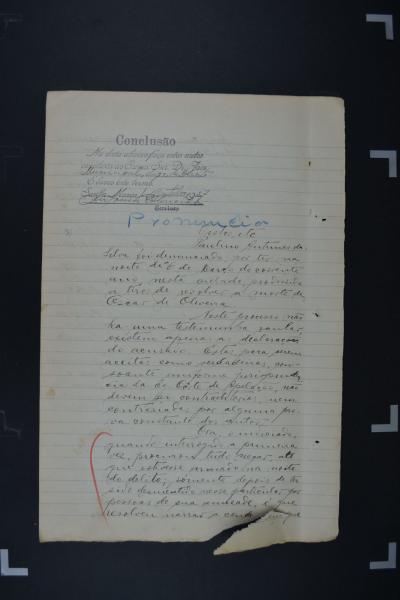 Conclusão
Na data abaixo faço estes autos
conclusos ao Exmo. Snr. Dr. Juiz
Municipal
E lavro este termo.
Santa Maria
Escrivão
Pronuncia
Vistos, etc
Paulino Antunes da
Silva foi denunciado por ter, na
noite de 6 de março do corrente
ano, nesta cidade, produzido
a tiros de revolver a morte de
Oscar de Oliveira.
Neste processo não
ha uma testemunha
existem apenas as declarações
do acusado. Estas para serem
aceitas como verdadeiras, con-
soante uniforme jurisprudên-
cia da Côrte de Apelação, não
devem ser contraditorias, nem
contrariadas por alguma pro-
va constante dos autos.
Ora, o acusado,
quando interrogado a primeira
vez, procurou tudo negar, até
que estivesse armado na noite
do delito; somente depois de ter
sido desmentido nesse particular por
pessoas de sua amizade, é que
resolveu narrar a cena